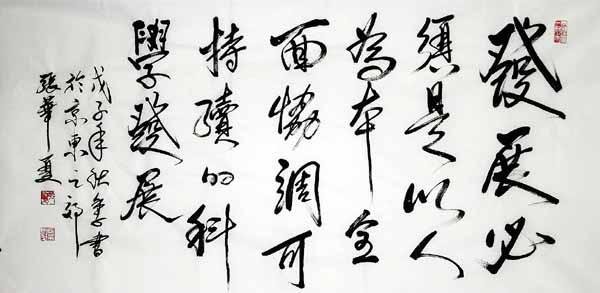 發展必
須是以人
為本全
面協調可
持續的科
學發展
戊子年秋季書
於京東之郊
張華夏